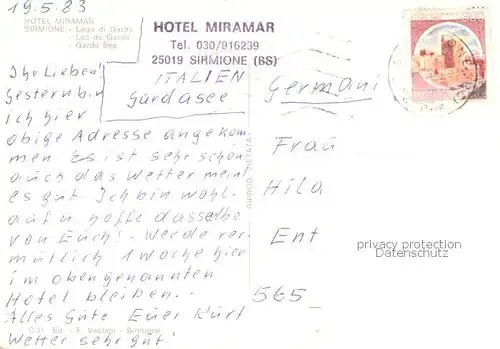 19.5.83
HOTEL MIRAMAR
SIRMIONE - Lago di Garda
- Lac de Garde
- Garda See
HOTEL MIRAMAR
Tel. 030/916239
25019 SIRMIONE (BS)
ITALIEN
Gardasee
Ihr Lieben!
Gestern bin
ich hier
obige Adresse angekom
men. Es ist sehr schön
auch das Wetter meint
es gut. Ich bin wohl-
auf u. hoffe dasselbe
von Euch! Werde ver-
mutlich 1 Woche hier
im obengenannten
Hotel bleiben.
Alles Gute Euer Kurt
Wetter sehr gut!
Ed. - F. Vedani - Sirmione
Germani
Frau
Hila
Ent
565
privacy protection
Datenschutz